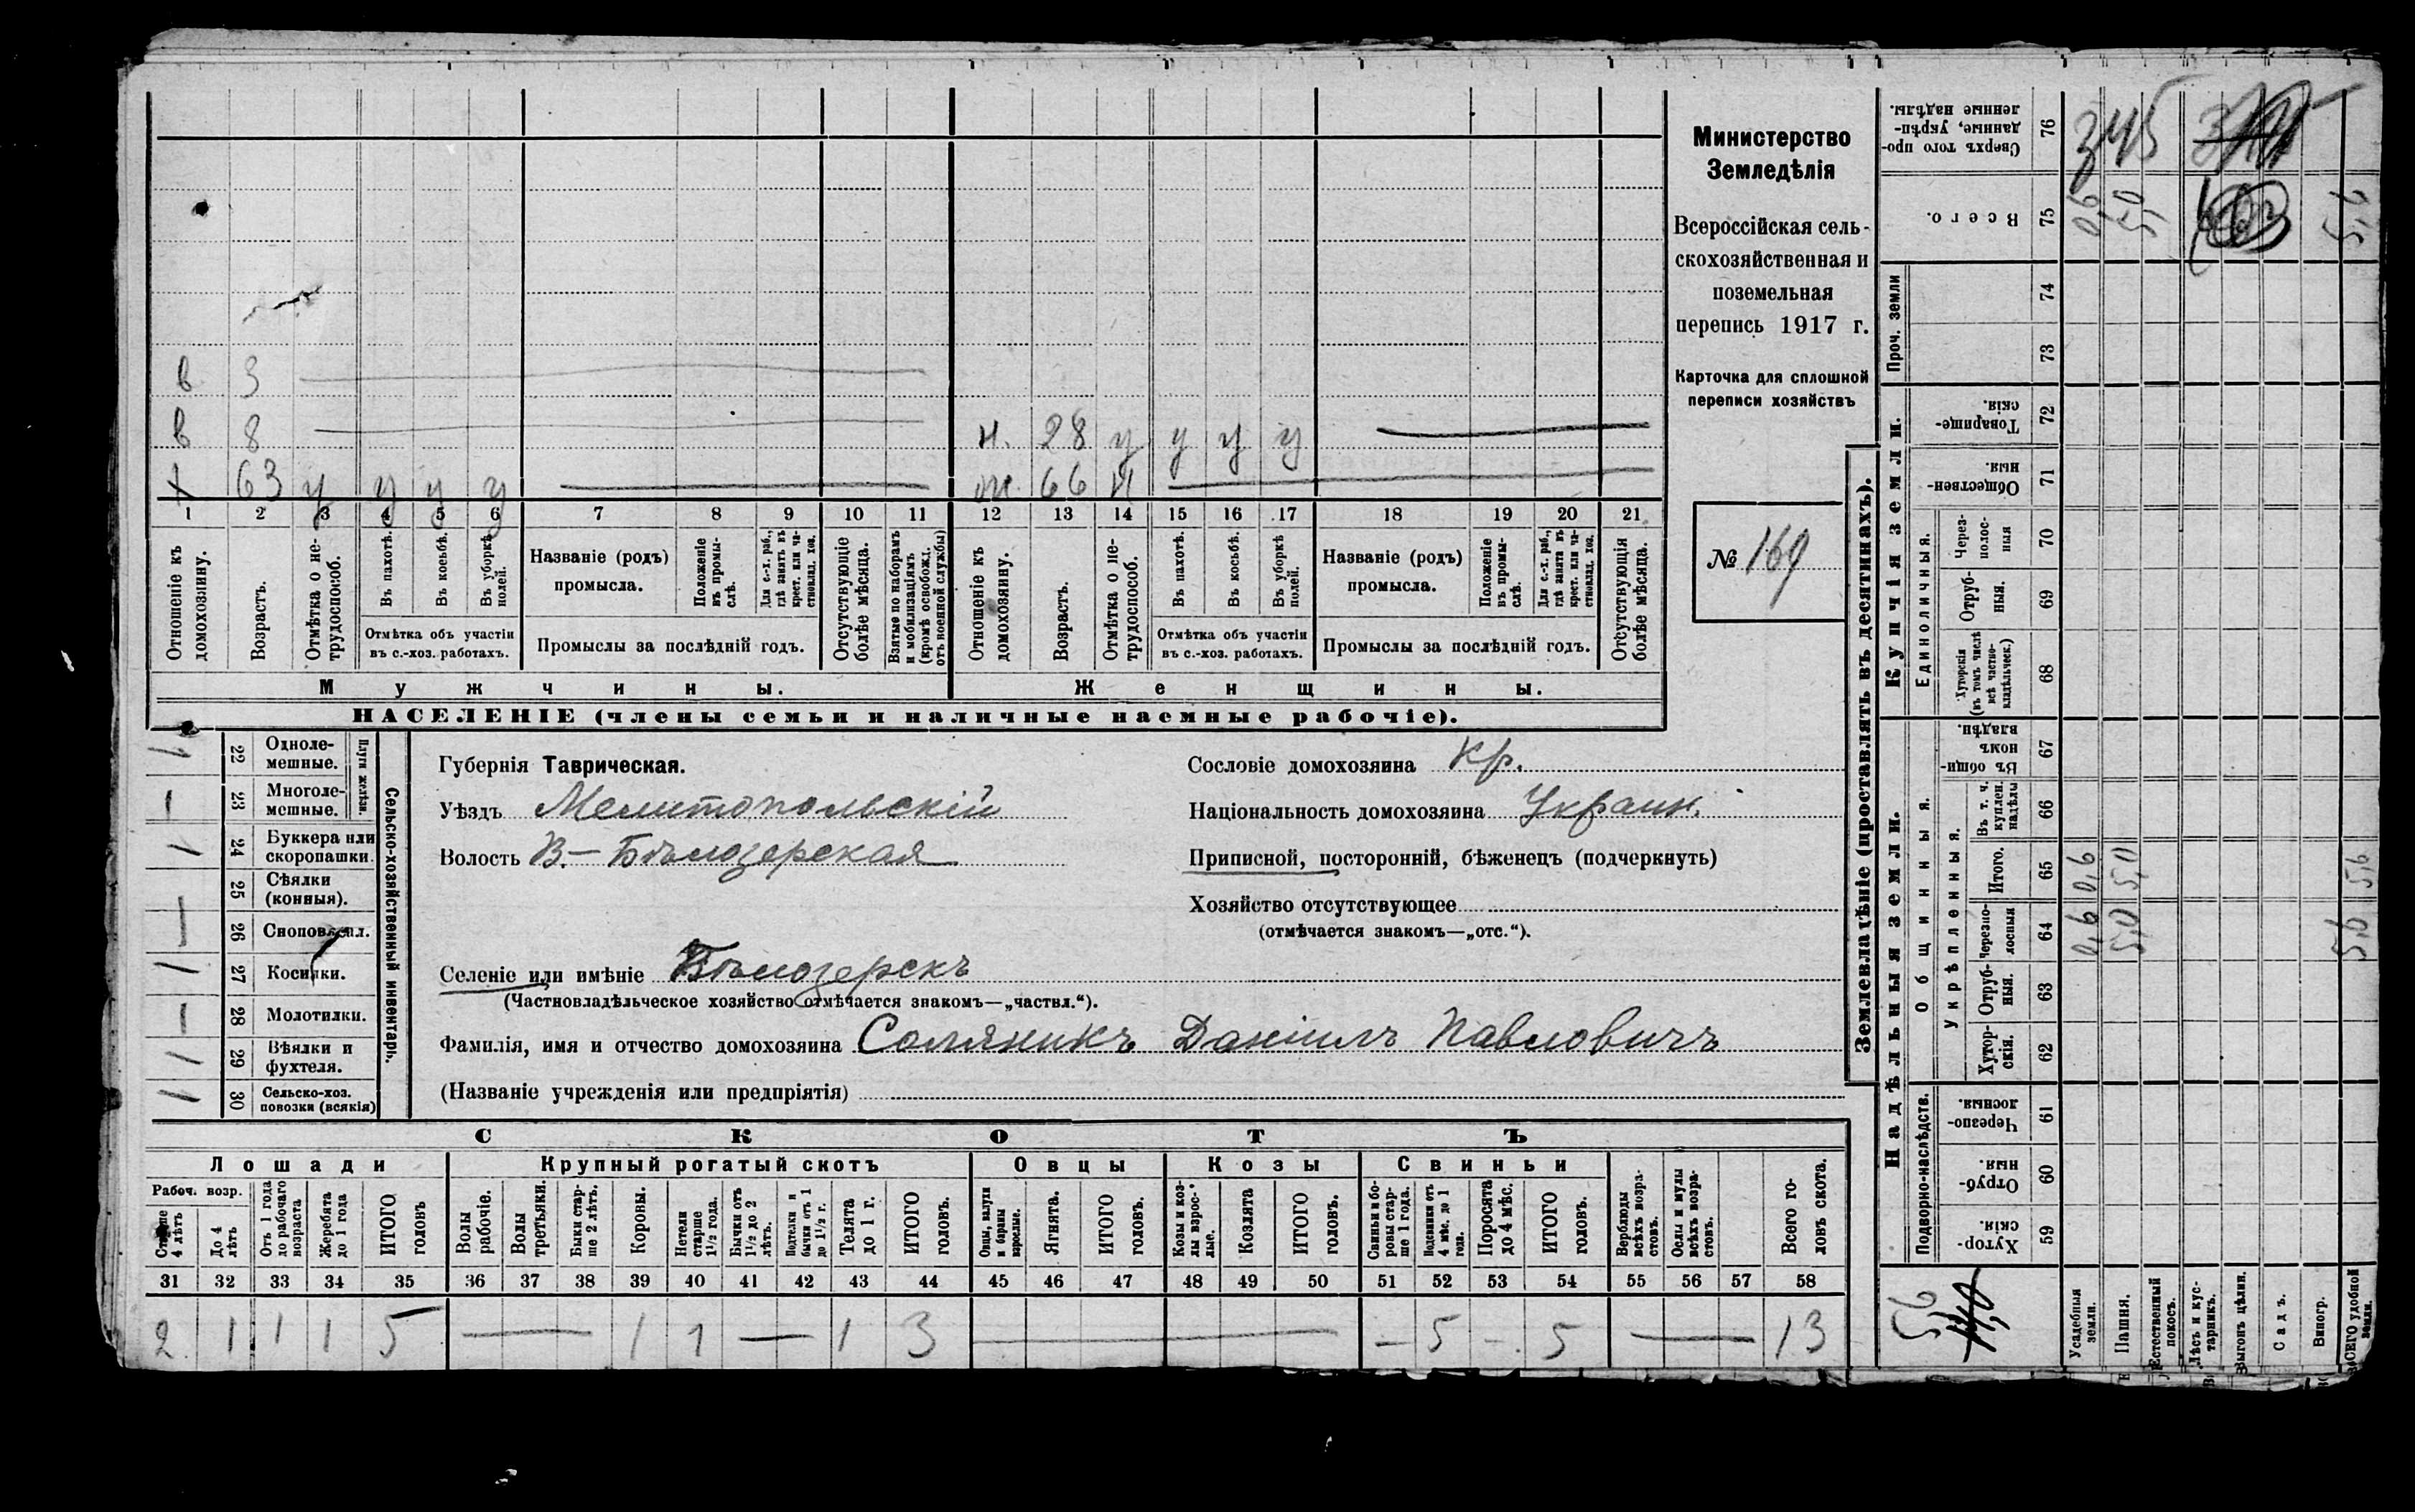 Министерство
Земледѣлія
Всероссійская сель-
скохозяйственная и
поземельная
перепись 1917 г.
Карточка для сплошной
переписи хозяйствъ
№ 169
в 3
в 8
н. 28 у у у у
х 63 у у у у
ж. 66 н
1 2 3 4 5 6 7 8 9 10 11 12 13 14 15 16 17 18 19 20 21
Отношеніе къ домохозяину.
Возрастъ.
Отмѣтка о не-
трудоспособ.
Въ пахотѣ.
Въ косьбѣ.
Въ уборкѣ полей.
Отмѣтка объ участіи
въ с.-хоз. работахъ.
Названіе (родъ)
промысла.
Положеніе въ промы-
слѣ.
Для с.-х. раб., гдѣ занятъ въ крест. или ча-
стновлад. хоз.
Промыслы за послѣдній годъ.
Отсутствующіе болѣе мѣсяца.
Взятые по наборамъ и мобилизаціямъ (кромѣ освобожд. отъ военной службы)
Отношеніе къ домохозяину.
Возрастъ.
Отмѣтка о не-
трудоспособ.
Въ пахотѣ.
Въ косьбѣ.
Въ уборкѣ полей.
Отмѣтка объ участіи
въ с.-хоз. работахъ.
Названіе (родъ)
промысла.
Положеніе въ промы-
слѣ.
Для с.-х. раб., гдѣ занята въ крест. или ча-
стновлад. хоз.
Промыслы за послѣдній годъ.
Отсутствующія болѣе мѣсяца.
Мужчины.
Женщины.
НАСЕЛЕНІЕ (члены семьи и наличные наемные рабочіе).
Сельско-хозяйственный инвентарь.
Плуги желѣзн.
1 22 Одноле-
мешные.
— 23 Многоле-
мешные.
1 24 Буккера или
скоропашки.
— 25 Сѣялки
(конныя).
— 26 Сноповязал.
1 27 Косилки.
— 28 Молотилки.
1 29 Вѣялки и
фухтеля.
1 30 Сельско-хоз.
повозки (всякія)
Губернія Таврическая.
Уѣздъ Мелитопольскій
Волость В.-Бѣлозерская
Сословіе домохозяина Кр.
Національность домохозяина Украин.
Приписной, посторонній, бѣженецъ (подчеркнуть)
Хозяйство отсутствующее
(отмѣчается знакомъ—„отс.“).
Селеніе или имѣніе Бѣлозерскъ
(Частновладѣльческое хозяйство отмѣчается знакомъ—„частвл.“).
Фамилія, имя и отчество домохозяина Солляникъ Даніилъ Павловичъ
(Названіе учрежденія или предпріятія)
СКОТЪ
Лошади
Крупный рогатый скотъ
Овцы
Козы
Свиньи
Рабоч. возр.
Старше 4 лѣтъ
До 4 лѣтъ
Отъ 1 года до рабочаго возраста
Жеребята до 1 года
ИТОГО головъ
Волы рабочіе.
Волы третьяки.
Быки стар-
ше 2 лѣтъ.
Коровы.
Нетели старше 1½ года.
Бычки отъ 1½ до 2 лѣтъ.
Подтелки и бычки отъ 1 до 1½ г.
Телята до 1 г.
ИТОГО головъ.
Овцы, валухи и бараны взрослые.
Ягнята.
ИТОГО головъ.
Козы и коз-
лы взрос-
лые.
Козлята
ИТОГО головъ.
Свиньи и бо-
ровы стар-
ше 1 года.
Подсвинки отъ 4 мѣс. до 1 года.
Поросята до 4 мѣс.
ИТОГО головъ.
Верблюды всѣхъ возра-
стовъ.
Ослы и мулы всѣхъ возра-
стовъ.
Всего го-
ловъ скота.
31 32 33 34 35 36 37 38 39 40 41 42 43 44 45 46 47 48 49 50 51 52 53 54 55 56 57 58
2 1 1 1 5 — 1 1 — 1 3 — - 5 - 5 — 13
Землевладѣніе (проставлять въ десятинахъ).
Надѣльныя земли.
Купчія земли.
Проч. земли
Подворно-наслѣдств.
Общинныя.
Укрѣпленныя.
Единоличныя.
59 Хутор-
скія.
60 Отруб-
ныя.
61 Черезпо-
лосныя.
62 Хутор-
скія.
63 Отруб-
ныя.
64 Черезпо-
лосныя
65 Итого.
66 Въ т. ч. куплен. надѣлы
67 Въ общин-
номъ владѣн.
68 Хуторскія (въ томъ числѣ всѣ частно-
владѣльческ.)
69 Отруб-
ныя.
70 Через-
полос-
ныя
71 Обществен-
ныя.
72 Товарище-
скія.
73
74
75 Всего.
76 Сверхъ того про-
данные, укрѣп-
ленные надѣлы.
Усадебныя земли.
0,6 0,6 0,6
Пашня.
5,0 5,0 5,0
Естественный покосъ.
Лѣсъ и кус-
тарникъ.
Выгонъ цѣлин.
Садъ.
Виногр.
ВСЕГО удобной земли.
5,6 5,6 5,6
5,6
345